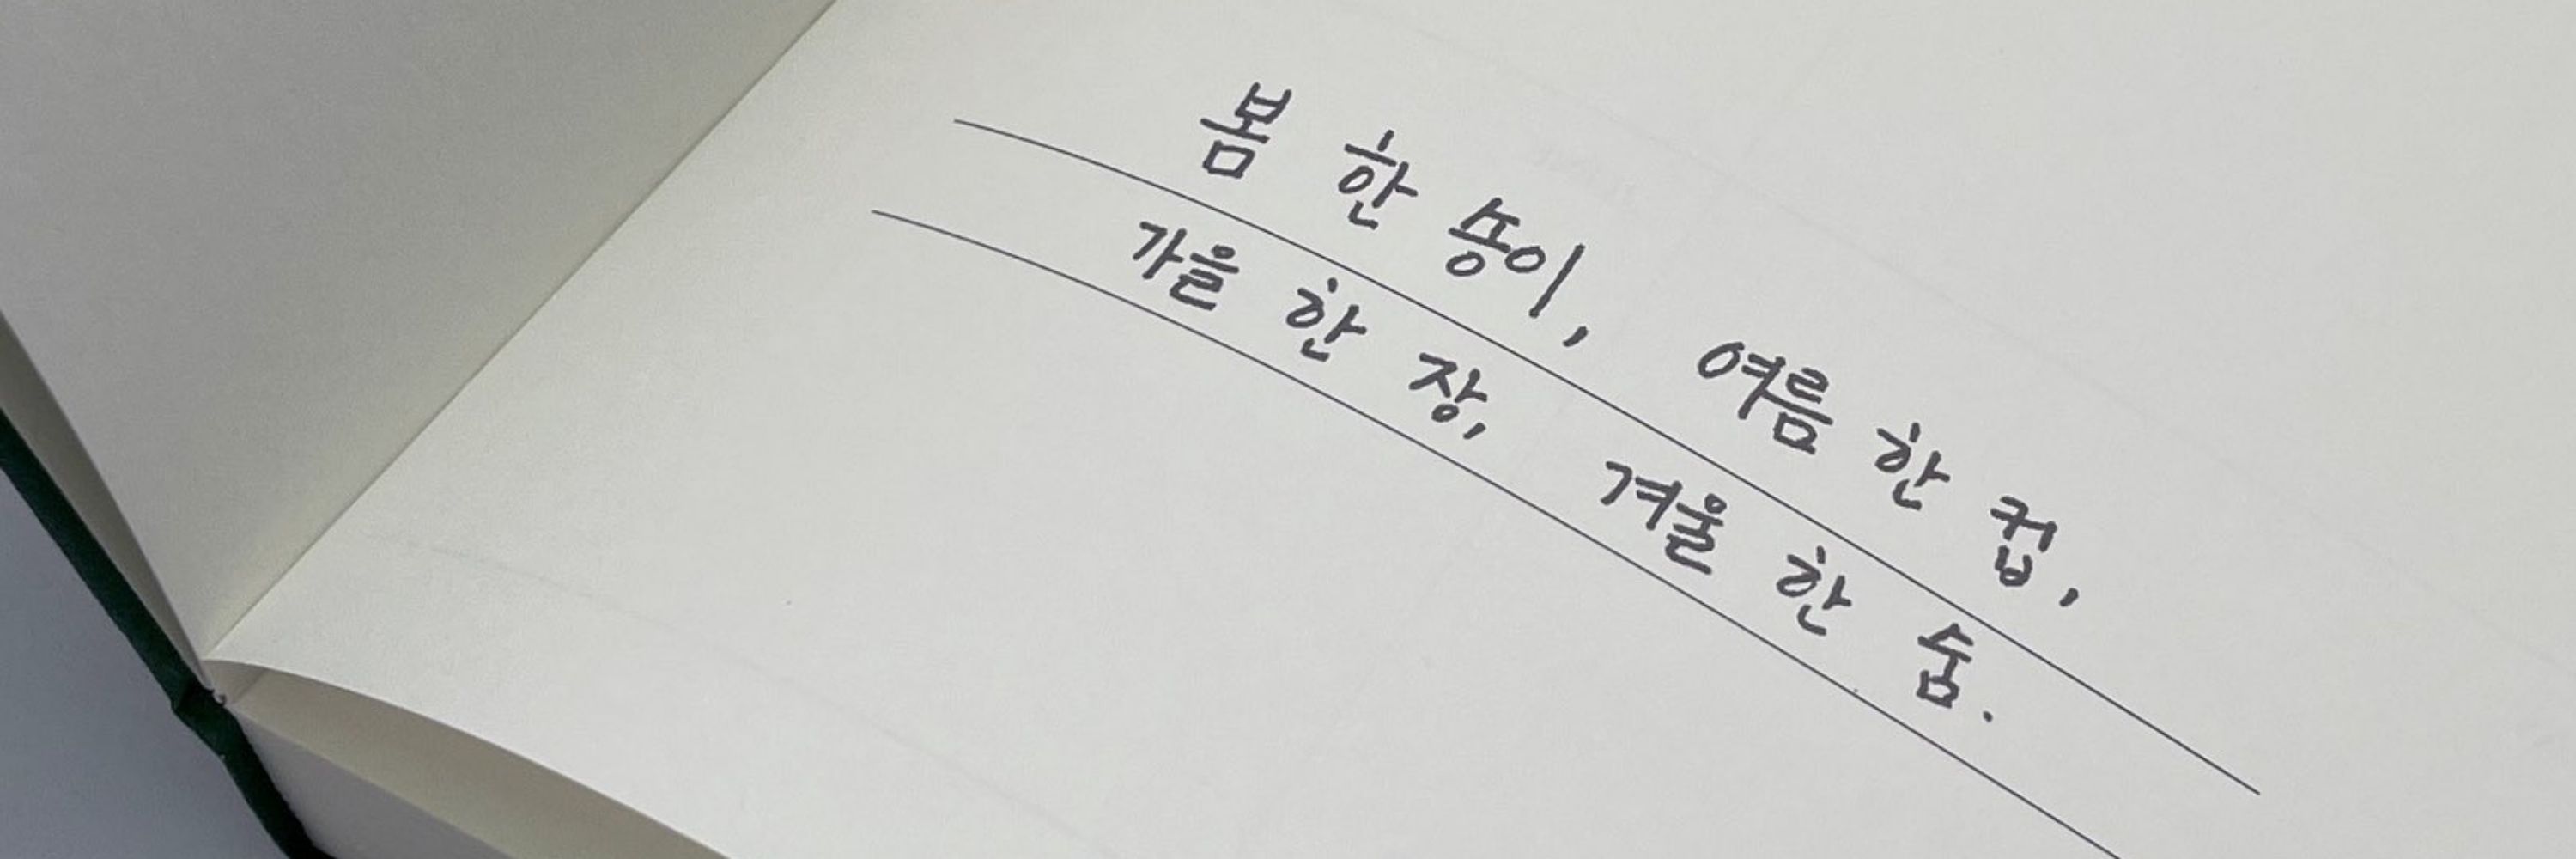 봄 한 송이, 여름 한 컵,
가을 한 장, 겨울 한 숨.